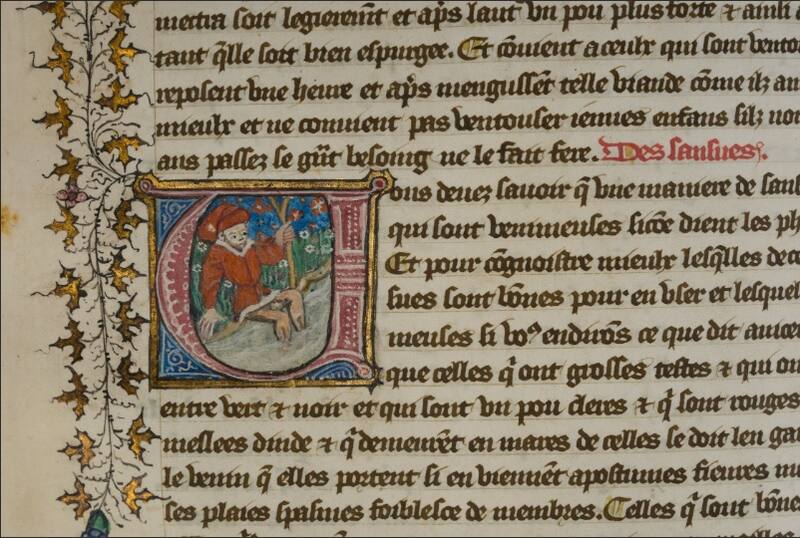 mettra soit legierem̃t et apr̃s laut vn pou plus forte ⁊ ainsi a
tant q̃lle soit bien espurgee. Et cõuient a ceulx qui sont vento
reposent vne heure et apr̃s mengussẽt telle viande cõme ilz au
mieulx et ne conuient pas ventouser ienues enfans silz non
ans passez se grãt besoing ne le fait fere. Des sansues.
Vous deuez sauoir q̃ vne maniere de sans
qui sont venimeuses sicõe dient les ph
Et pour cõgnoistre mieulx lesq̃lles de ce
sues sont bõnes pour en vser et lesquel
meuses si voꝰ endirõs ce que dit auice
que celles q̃ ont grosses testes ⁊ qui on
entre vert ⁊ noir et qui sont vn pou cleres ⁊ q̃ sont rouges
meslees dinde ⁊ q̃ demeurẽt en mares de celles se doit len gar
le venin q̃ elles portent si en viennẽt apostumes fieures m
ses plaies spasmes foiblesce de membres. Celles q̃ sont bõne